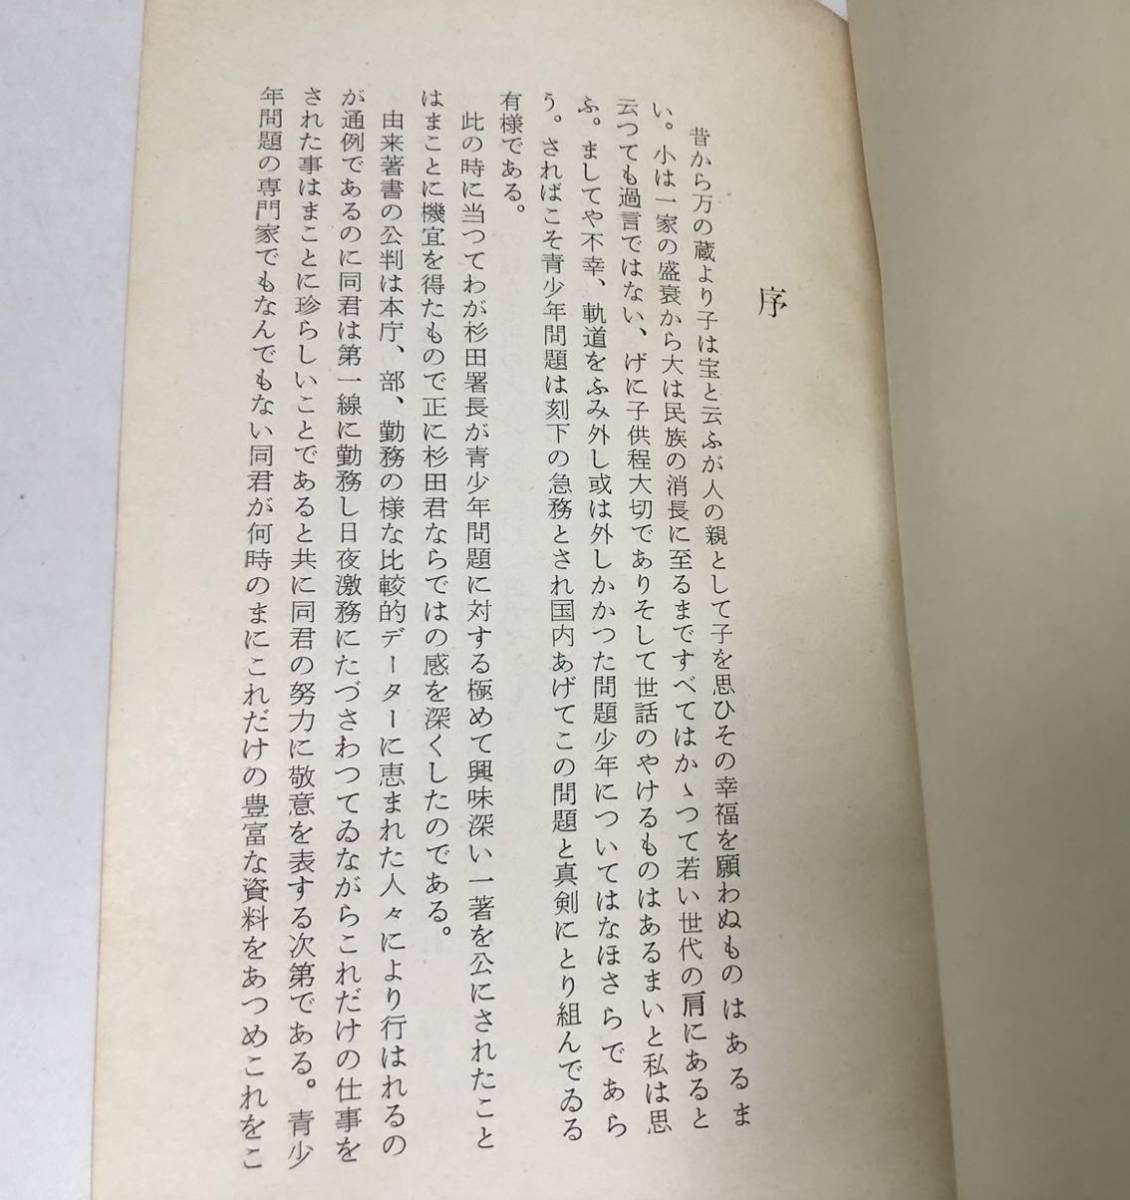 序
昔から万の蔵より子は宝と云ふが人の親として子を思ひその幸福を願わぬものはあるま
い。小は一家の盛衰から大は民族の消長に至るまですべてはかゝつて若い世代の肩にあると
云つても過言ではない、げに子供程大切でありそして世話のやけるものはあるまいと私は思
ふ。ましてや不幸、軌道をふみ外し或は外しかかつた問題少年についてはなほさらであら
う。さればこそ青少年問題は刻下の急務とされ国内あげてこの問題と真剣にとり組んでゐる
有様である。
此の時に当つてわが杉田署長が青少年問題に対する極めて興味深い一著を公にされたこと
はまことに機宜を得たもので正に杉田君ならではの感を深くしたのである。
由来著書の公判は本庁、部、勤務の様な比較的データーに恵まれた人々により行はれるの
が通例であるのに同君は第一線に勤務し日夜激務にたづさわつてゐながらこれだけの仕事を
された事はまことに珍らしいことであると共に同君の努力に敬意を表する次第である。青少
年問題の専門家でもなんでもない同君が何時のまにこれだけの豊富な資料をあつめこれをこ